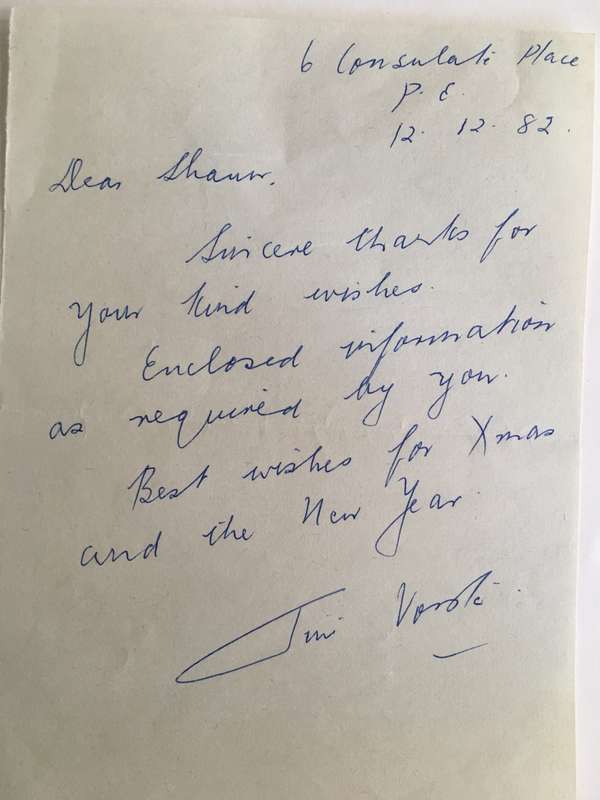 6 Consulate Place
P. E.
12. 12. 82.
Dear Shaun,
Sincere thanks for
your kind wishes.
Enclosed information
as required by you.
Best wishes for Xmas
and the New Year.